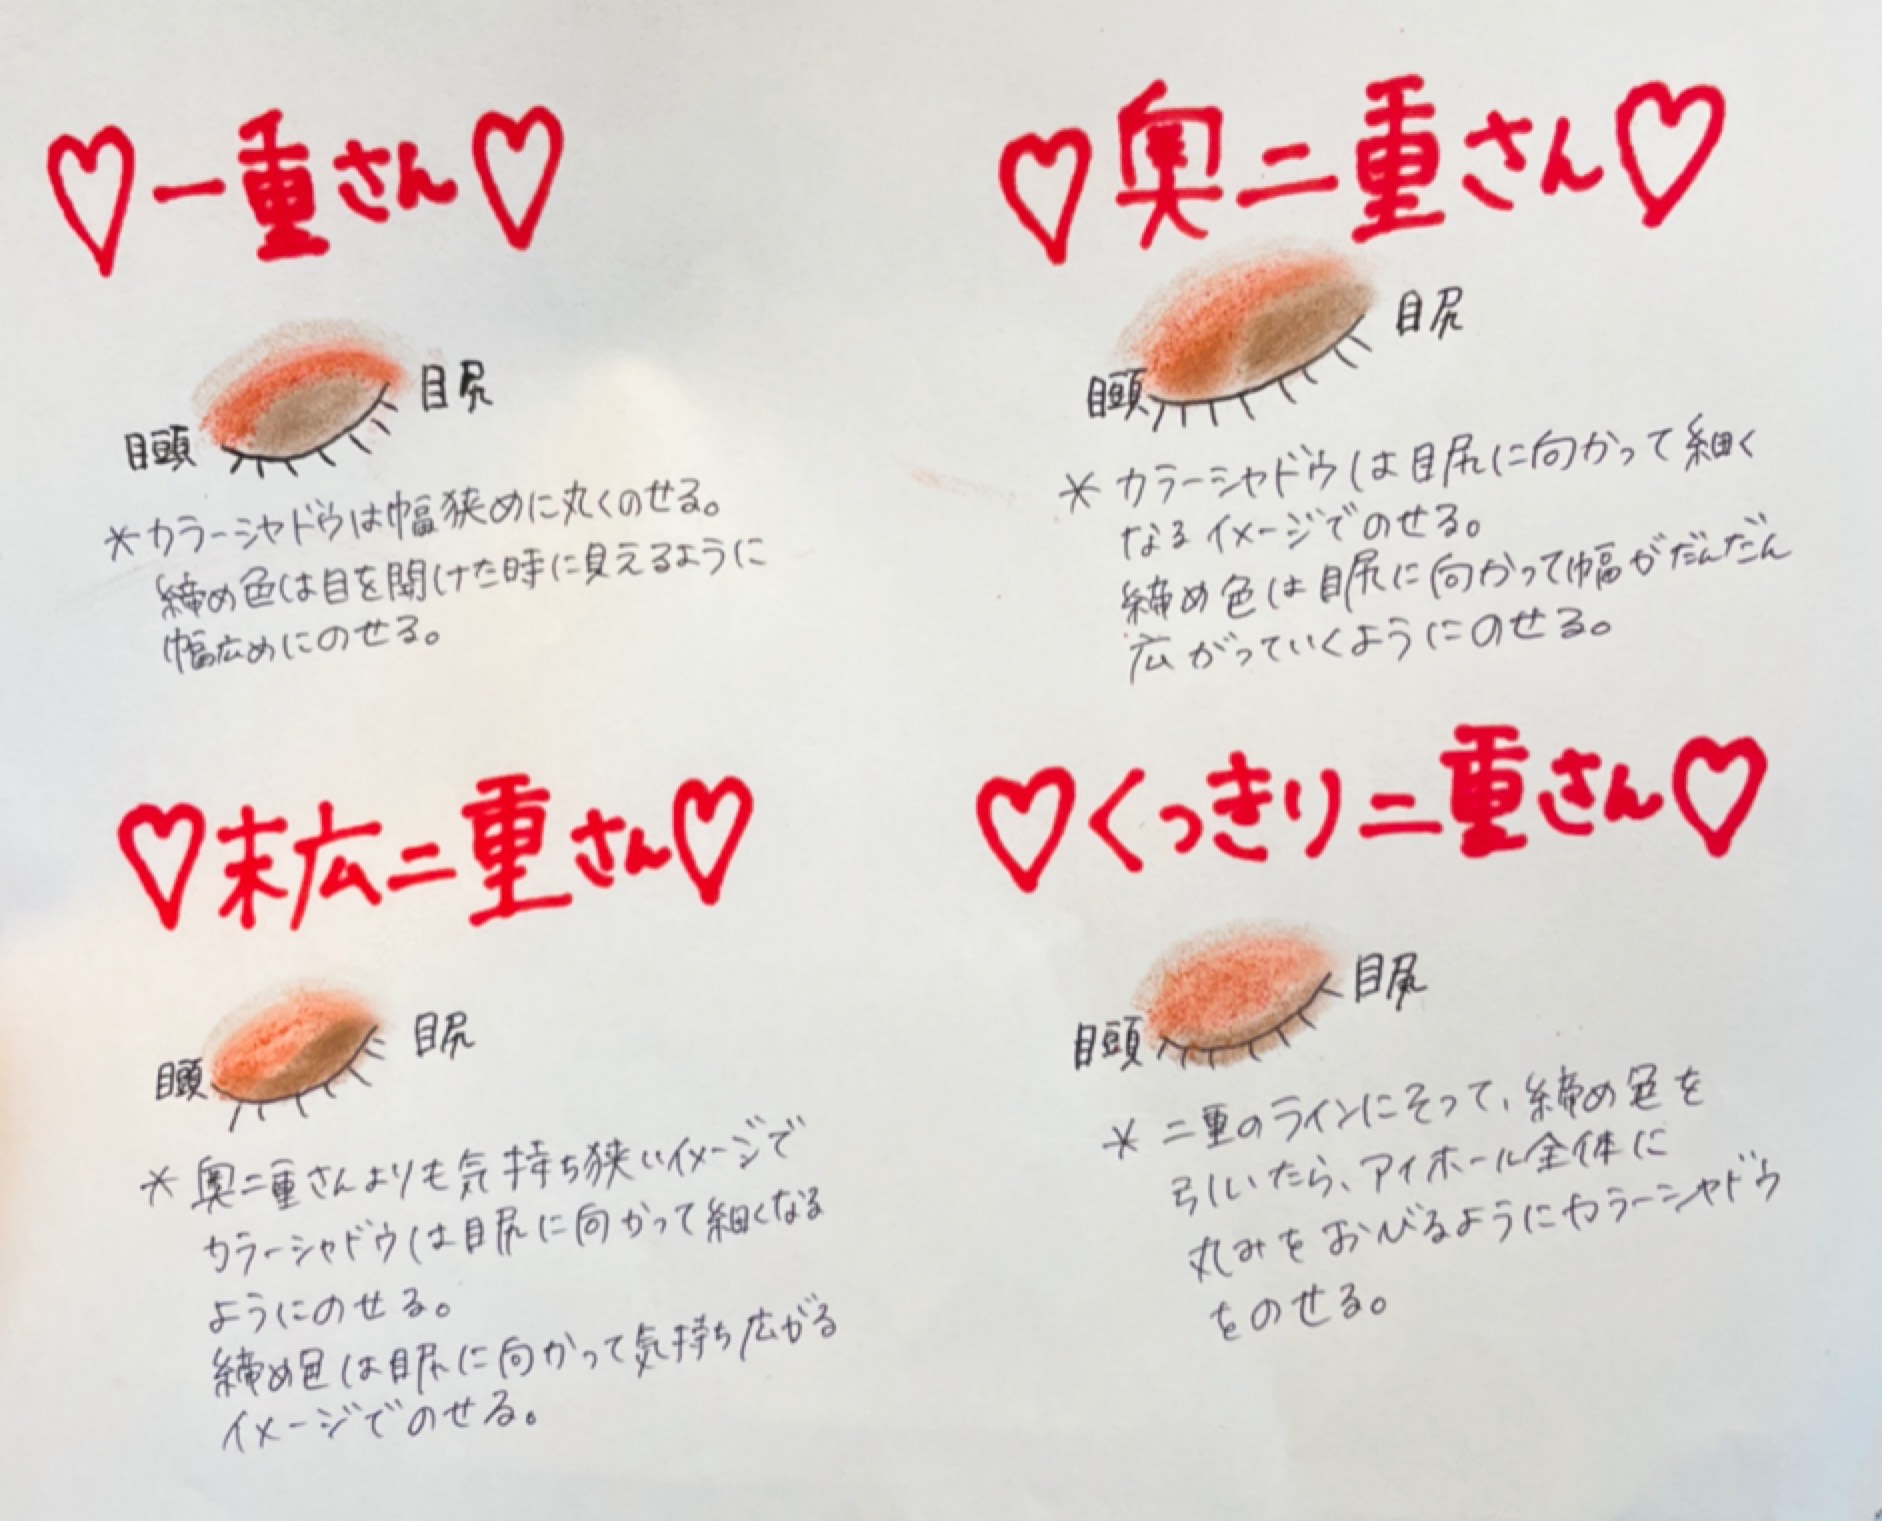 ♡一重さん♡
目頭
目尻
*カラーシャドウは幅狭めに丸くのせる。
締め色は目を開けた時に見えるように
幅広めにのせる。
♡奥二重さん♡
目頭
目尻
*カラーシャドウは目尻に向かって細く
なるイメージでのせる。
締め色は目尻に向かって幅がだんだん
広がっていくようにのせる。
♡末広二重さん♡
目頭
目尻
*奥二重さんよりも気持ち狭いイメージで
カラーシャドウは目尻に向かって細くなる
ようにのせる。
締め色は目尻に向かって気持ち広がる
イメージでのせる。
♡くっきり二重さん♡
目頭
目尻
*二重のラインにそって、締め色を
引いたら、アイホール全体に
丸みをおびるようにカラーシャドウ
をのせる。